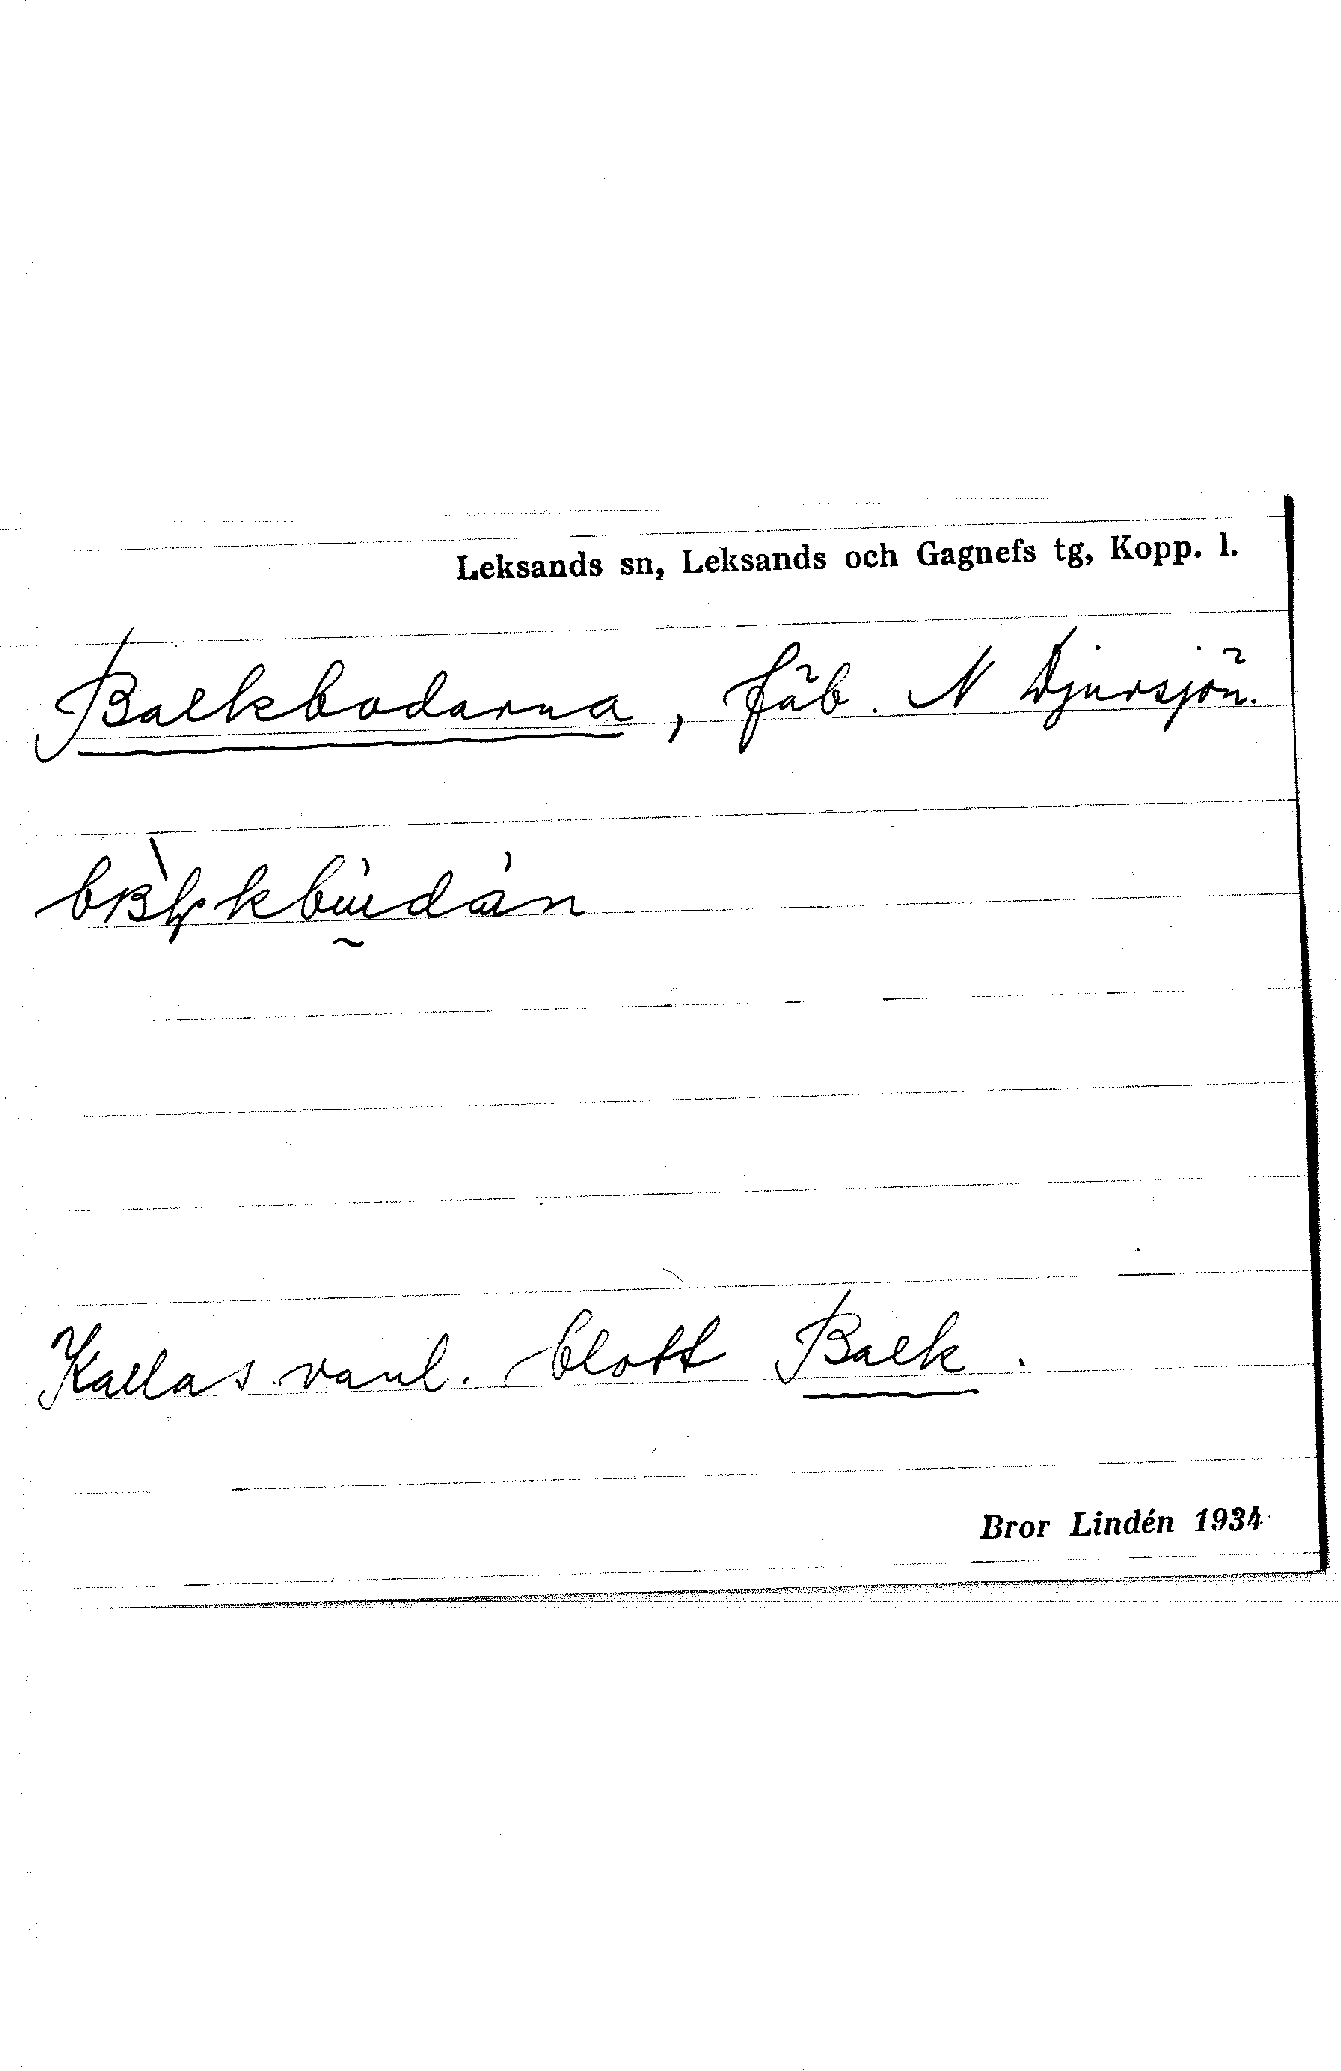 Leksands sn, Leksands och Gagnefs tg, Kopp. l.
Balkbodarna, fäb. N Djursjön.
Kallas vanl. blott Balk.
Bror Lindén 1934